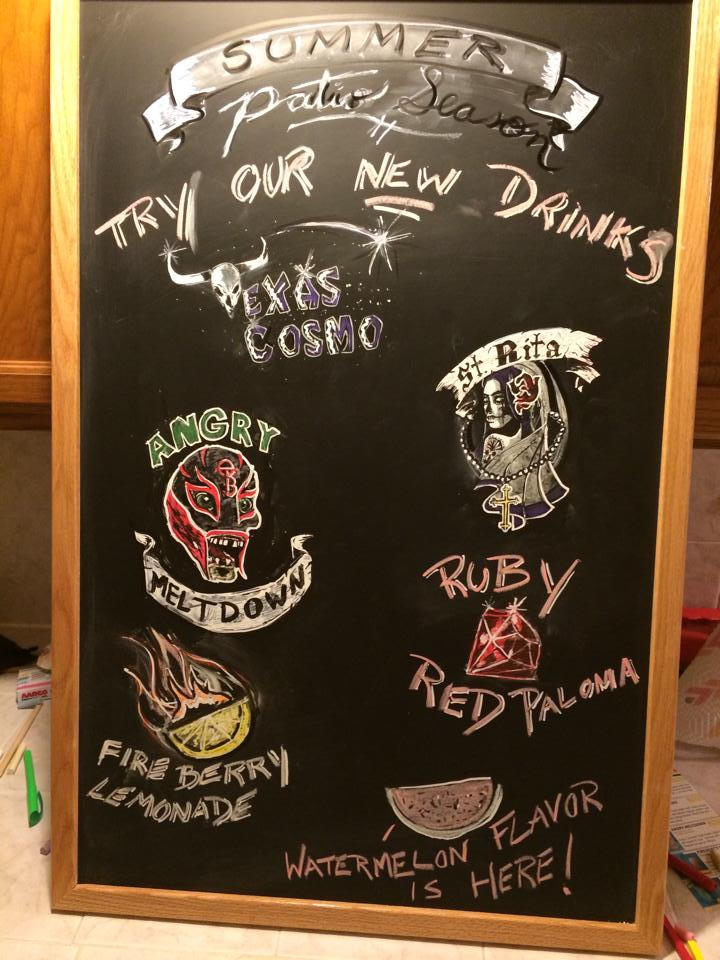 SUMMER
Patio Season
TRY OUR NEW DRINKS
TEXAS
COSMO
St Rita
ANGRY
MELTDOWN
RUBY
RED PALOMA
FIRE BERRY
LEMONADE
WATERMELON FLAVOR
IS HERE!